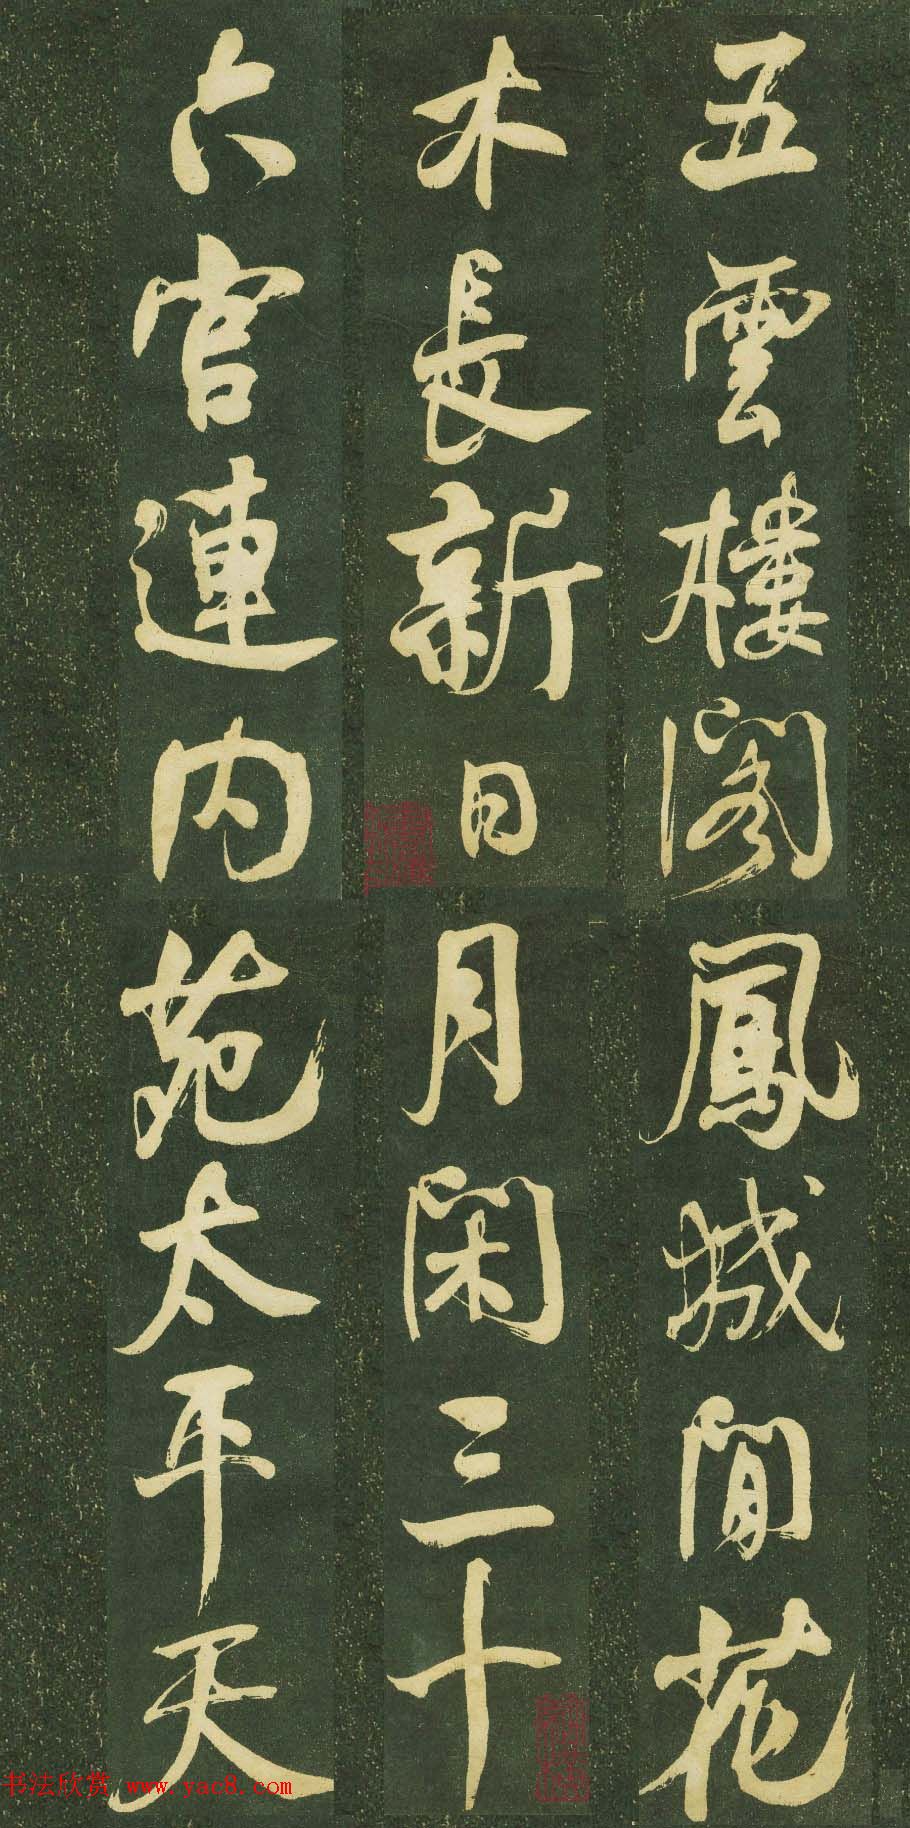 五雲樓閣鳳城間花
木長新日月閑三十
六宮連內苑太平天
书法欣赏 www.yac8.com